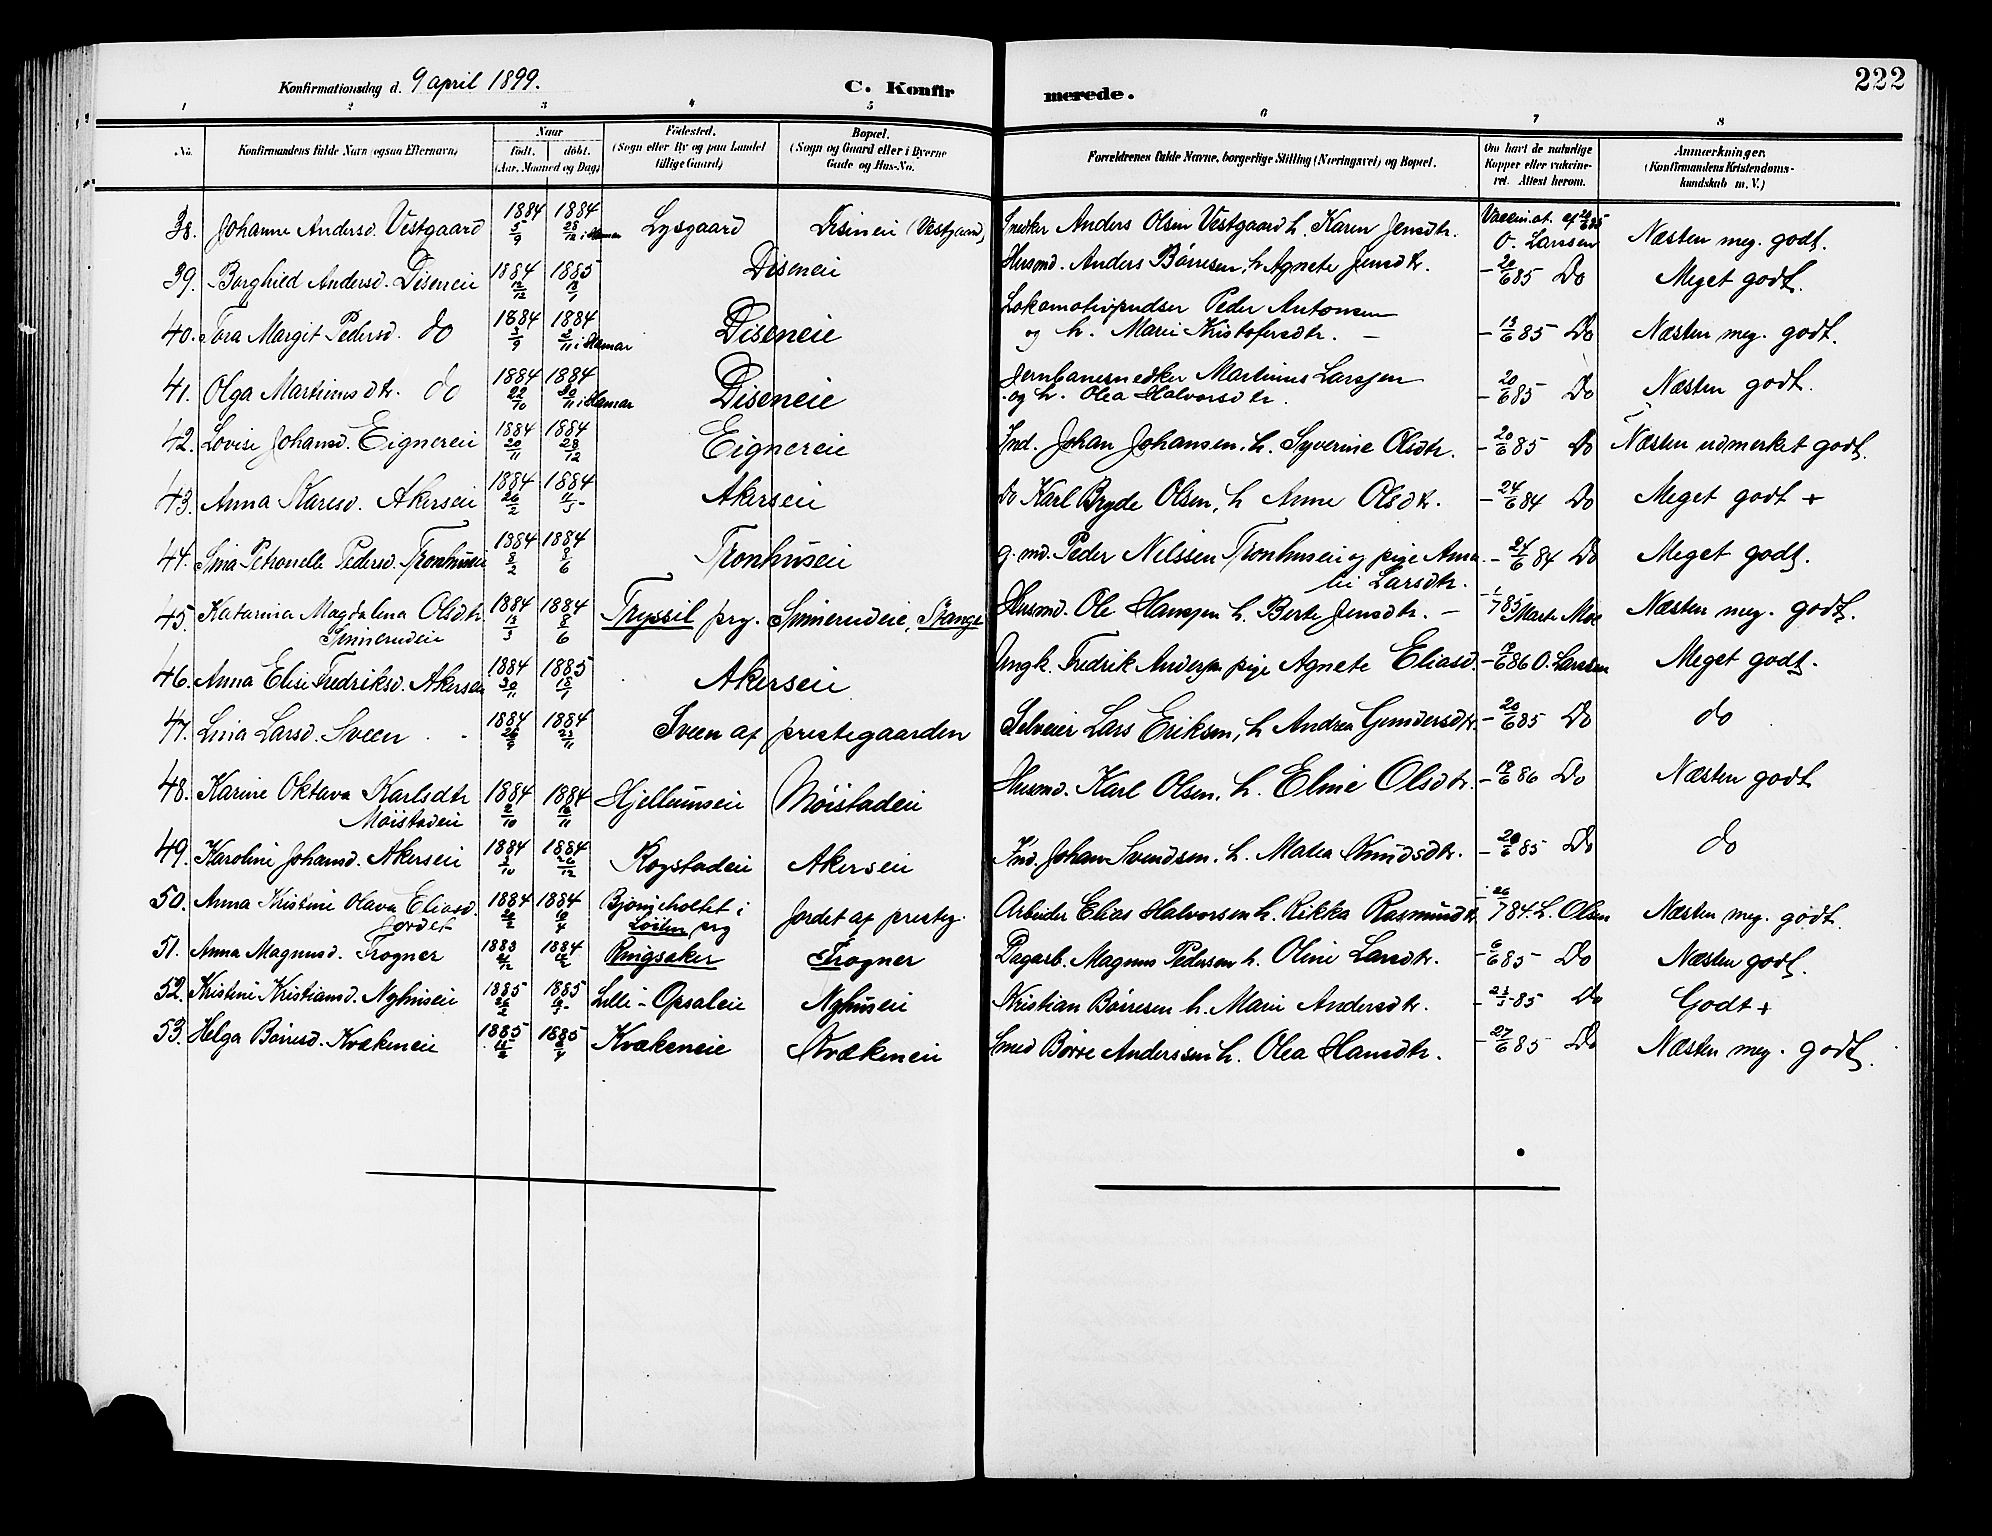 222
Konfirmationsdag d. 9 april 1899. C. Konfirmerede.
1 2 3 4 5 6 7 8
No. Konfirmandens fulde Navn (ogsaa Efternavn) Naar født. døbt. (Aar, Maaned og Dag) Fødested. (Sogn eller By og paa Landet tillige Gaard) Bopæl. (Sogn og Gaard eller i Byerne Gade og Hus-No. Forældrenes fulde Navne, borgerlige Stilling (Næringsvei) og Bopæl. Om havt de naturlige Kopper eller vakcineret. Attest herom. Anmærkninger. (Konfirmandens Kristendomskundskab m. V.)
38. Johanne Andersd. Vestgaard 1884 5/9 1884 28/12 i Hamar Lysgaard Disineie (Vestgaard) Snedker Anders Olsen Vestgaard h. Karen Jensdtr. Vaccin.at. af 20/6 85 O. Larssen Næsten meg. godt.
39. Borghild Andersd. Diseneie 1884 12/12 1885 18/1 Diseneie Husmd. Anders Børresen, h. Agnete Jensdtr. - 20/6 85 Do Meget godt.
40. Tora Margit Pedersd. do 1884 3/9 1884 2/11 i Hamar Diseneie Lokomotivpudser Peder Antonsen
og h. Marie Kristofersdtr. - 13/6 85 Do Næsten meg. godt.
41. Olga Martinusdtr. do 1884 22/10 1884 30/11 i Hamar Diseneie Jernbanesnedker Martinus Larsen
og h. Olea Halvorsdtr. - 20/6 85 Do Næsten godt.
42. Lovise Johansd. Eignereie 1884 20/11 1884 28/12 Eignereie Ind. Johan Johansen, h. Syverine Olsdtr. - 20/6 85 Do Næsten udmerket godt.
43. Anna Karesd. Akerseie 1884 26/2 1884 11/5 Akerseie do Karl Bryde Olsen, h Anne Olsdtr. - 24/6 84 Do Meget godt +
44. Sina Petronelle Pedersd. Tronhuseie 1884 8/2 1884 8/6 Tronhuseie g. md. Peder Nelssen Tronhuseie og pige Ama
lie Larsdtr. - 24/6 84 Do Meget godt.
45. Katarina Magdalena Olsdtr 1884 13/3 1884 8/6 Tryssil prg. Spinerudeie, Stange Husmd. Ole Hanssen h. Berte Jensdtr. - 1/7 85 Marte Moe Næsten meg. godt.
Spinerudeie
46. Anna Elise Fredriksd. Akerseie 1884 30/11 1885 18/1 Akerseie Ungk. Fredrik Anderssen pige Agnete Eliasd. - 17/6 86 O. Larssen Meget godt.
47. Lina Larsd. Sveen 1884 1884 23/11 Sveen af prestegaarden Selveier Lars Eriksen, h. Andrea Gundersdtr. - 20/6 85 Do do
48. Karine Oktava Karlsdtr 1884 2/10 1884 16/11 Hjellumseie Møistadeie Husmd. Karl Olsen, h. Eline Olsdtr. - 17/6 86 Do Næsten godt
Møistadeie
49. Karoline Johansd. Akerseie 1884 3/10 1884 26/12 Rogstadeie Akerseie Ind. Johan Svendsen. h. Matea Knudsdtr. - 20/6 85 Do do
50. Anna Kristine Olava Eliasd. 1884 20/2 1884 10/4 Bjørneholtet i Jordet af presteg. Arbeider Elias Halvorsen h. Rikka Rasmusdtr. 26/7 84. L. Olsen Næsten meg. godt.
Jordet Løiten prg
51. Anna Magnusd. Frogner 1883 21/12 1884 Ringsaker Frogner Dagarb. Magnus Pedersen h. Oline Larsdtr. - 6/6 85 Do Næsten godt.
52. Kristine Kristiansd. Nyhuseie 1885 1885 Lille-Opsaleie Nyhuseie Kristian Børresen h. Marie Andersdtr. - 85 Do Godt +
53. Helga Børresd. Kvækeneie 1885 1885 Kvækeneie Kvækeneie Smed Børre Anderssen h. Olea Hansdtr. - 27/6 85 Do Næsten meg. godt.